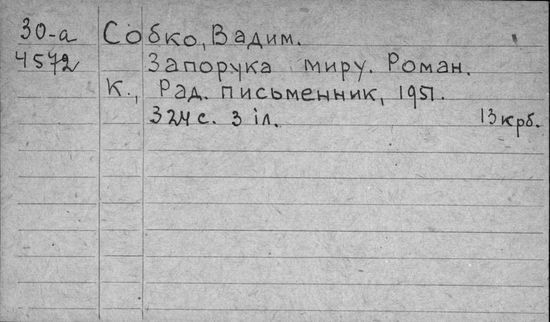 30-а Собко, Вадим.
4572 Запорука миру. Роман.
К., Рад. письменник, 1951.
324 с. 3 іл. 13 крб.